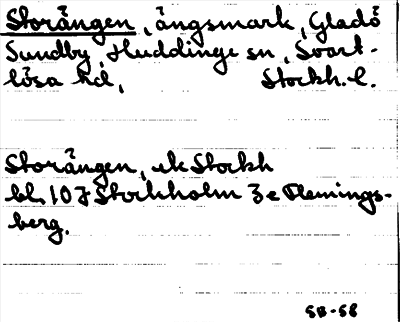 Storängen, ängsmark, Gladö
Sundby, Huddinge sn, Svart-
lösa hd, Stockh. l.
Storängen, ek Stockh
bl. 10 J Stockholm 3 e Flemings-
berg.
SB-58